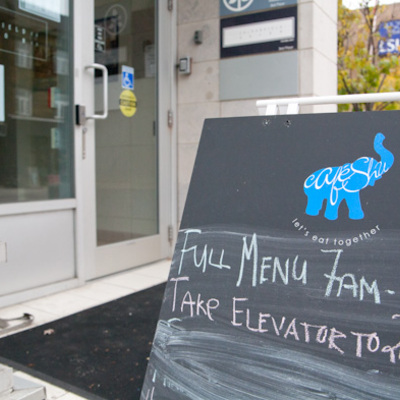 LSU
caféShu
let's eat together
FULL MENU 7AM-
TAKE ELEVATOR TO